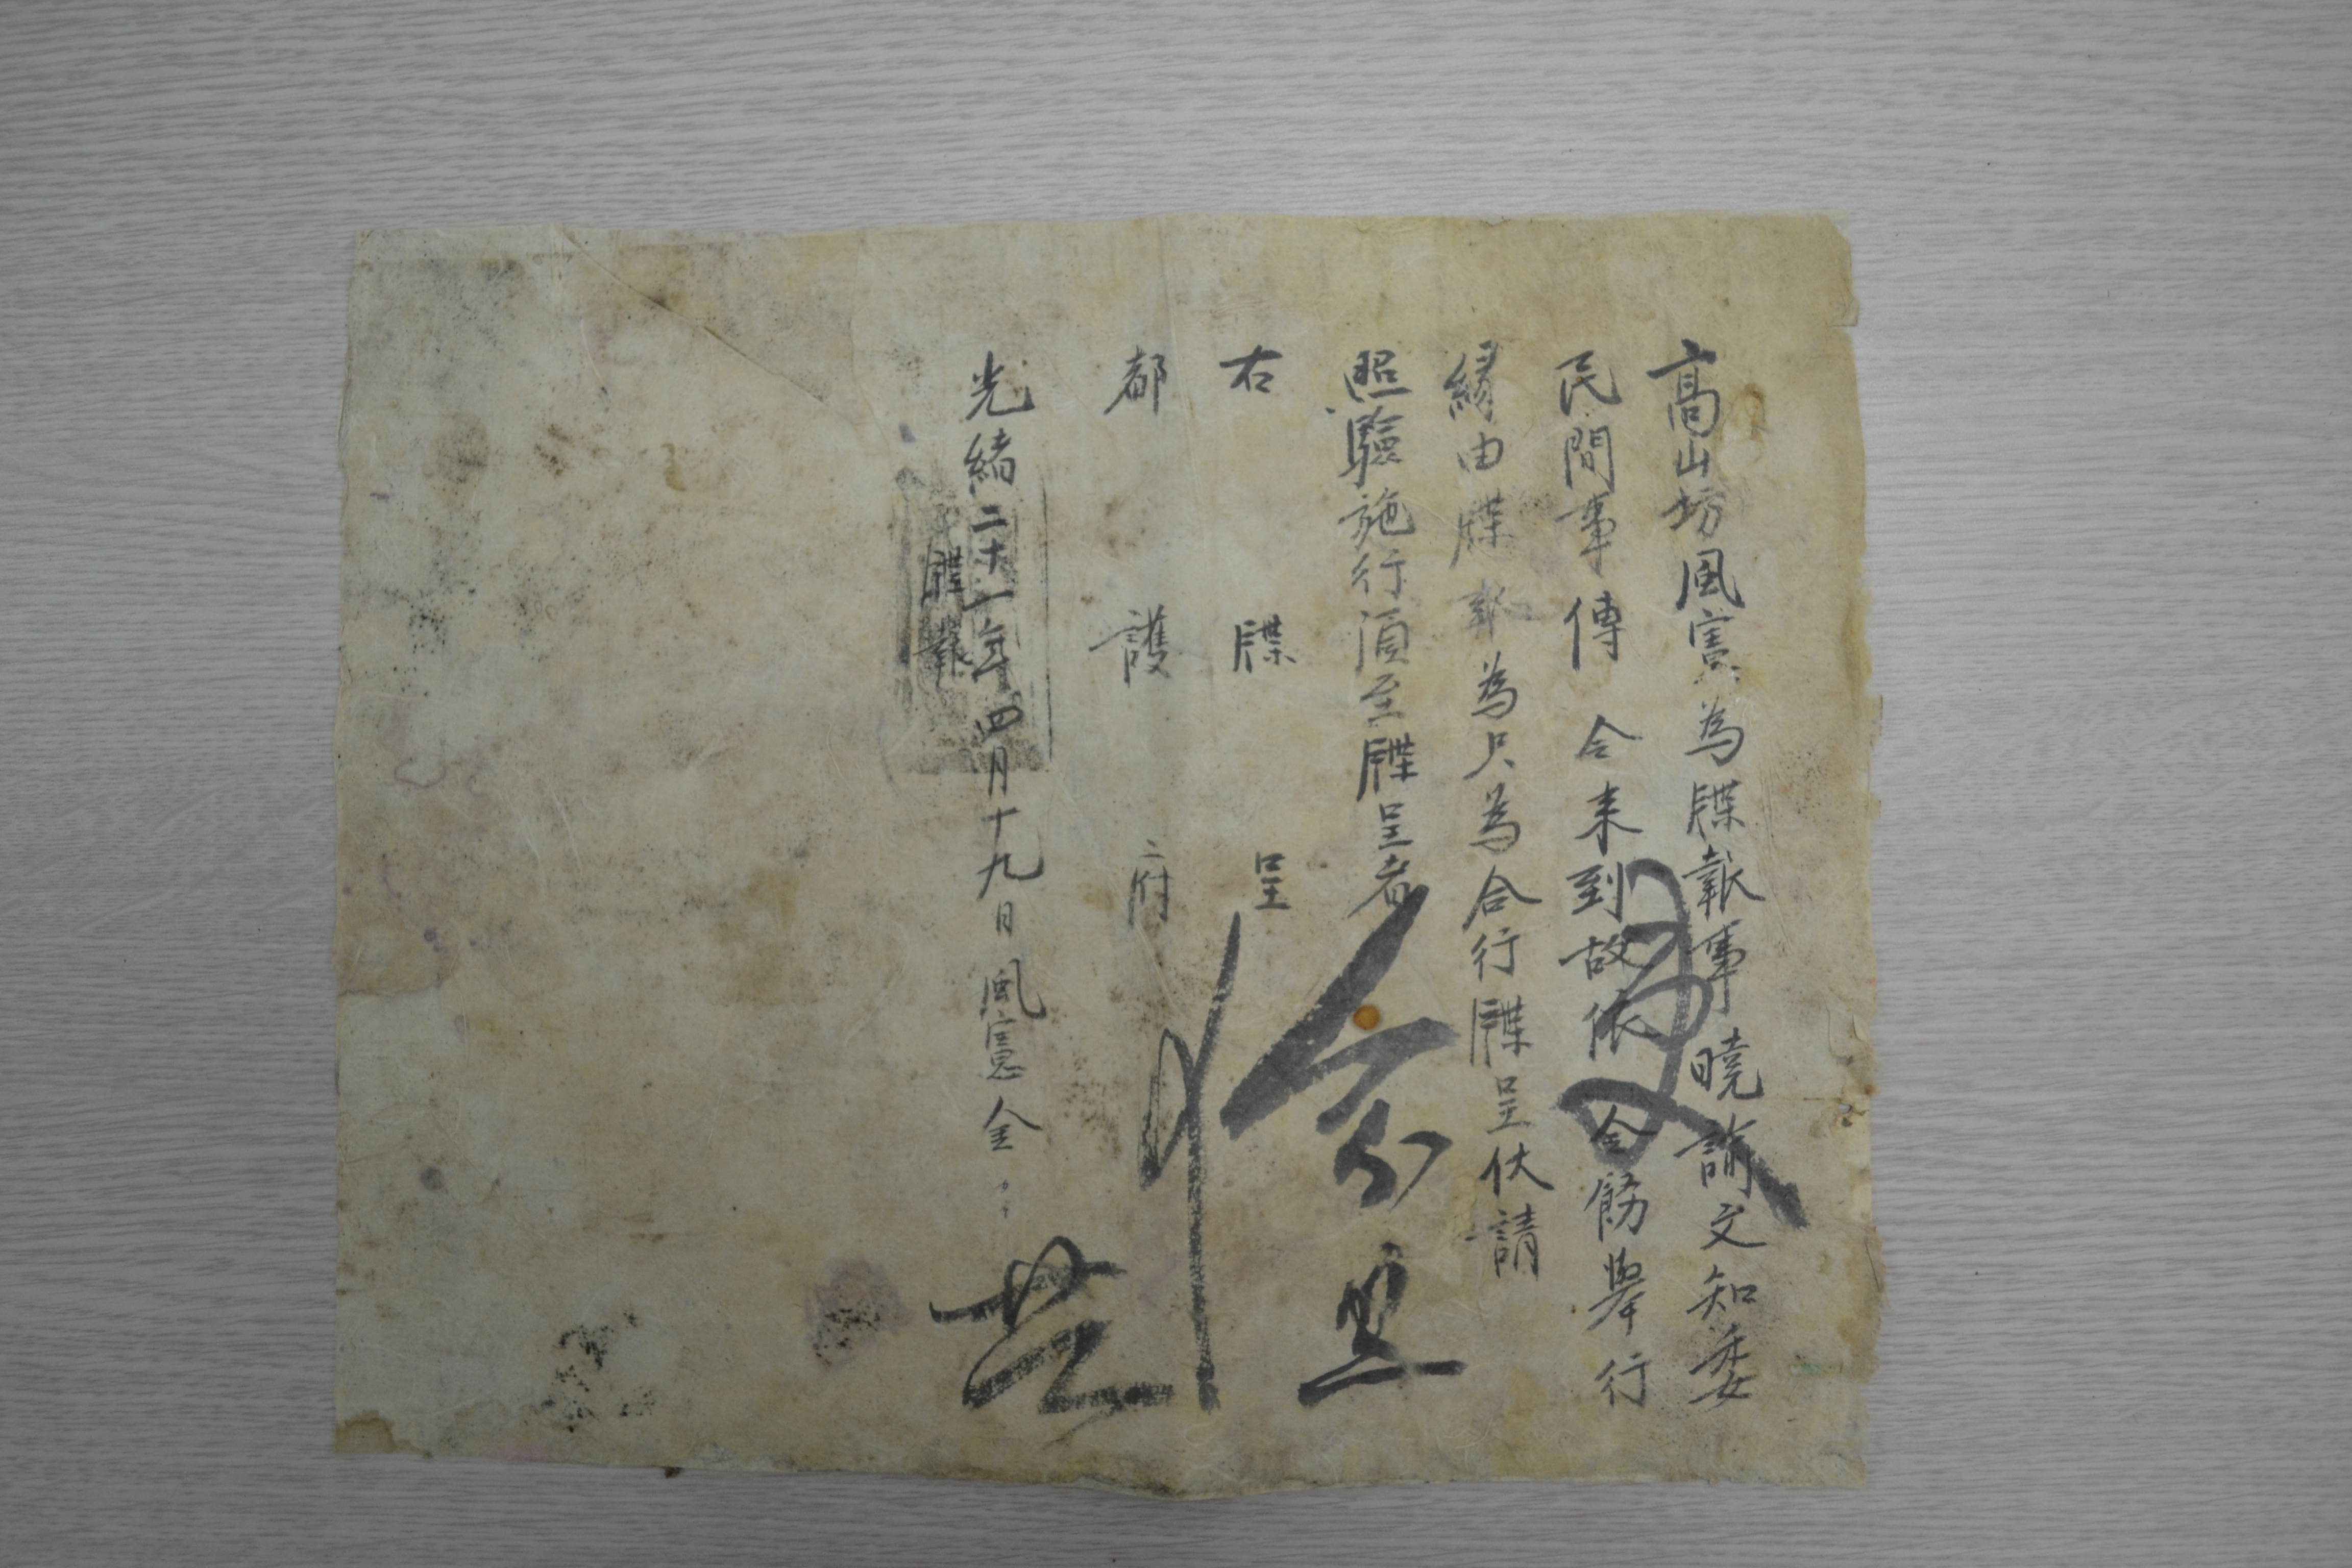 高山坊風憲為牒報事曉諭文知委
民間事傳 令来到故依 令飭擧行
緣由牒報為只為合行牒呈伏請
照驗施行須至牒呈者
右 牒 呈
都 護 府
光緖二十一年四月十九日風憲金
牒報